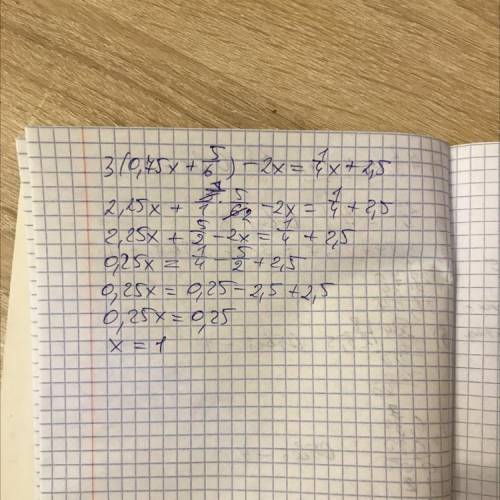 3(0,75x + 5/6) - 2x = 1/4x + 2,5
2,25x + 3/1 · 5/6 2 - 2x = 1/4 + 2,5
2,25x + 5/2 - 2x = 1/4 + 2,5
0,25x = 1/4 - 5/2 + 2,5
0,25x = 0,25 - 2,5 + 2,5
0,25x = 0,25
x = 1